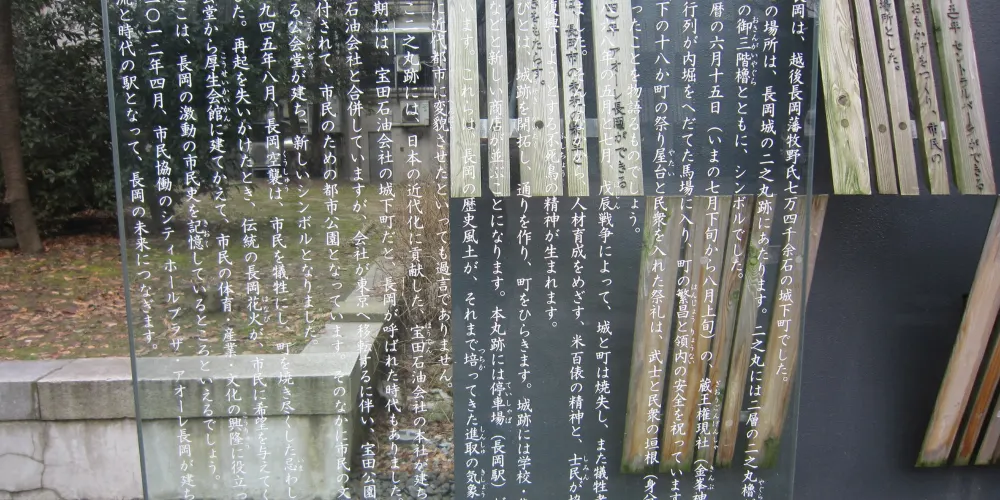 岡は、越後長岡藩牧野氏七万四千余石の城下町でした。
の場所は、長岡城の二之丸跡にあたります。二之丸には二層の一之丸櫓、
の御三階櫓とともに、シンボルでした。
暦の六月十五日（いまの七月下旬から八月上旬）の、蔵王権現社（金峯神
行列が内堀をへだてた馬場に入り、町の繁昌と領内の安全を祝っています
下の十八か町の祭り屋台と民衆を入れた祭礼は、武士と民衆の垣根（身分
ったことを物語るものでしょう。
年の五月と七月、戊辰戦争によって、城と町は焼失し、また犠牲者
から、人材育成をめざす、米百俵の精神と、士民が協
復興しようとする不死鳥の精神が生まれます。
びとは、城跡を開拓し、通りを作り、町をひらきます。城跡には学校・
などと新しい商店が並ぶことになります。本丸跡には停車場（長岡駅）が
います。これらは、長岡の歴史風土が、それまで培ってきた進取の気象
に近代都市に変貌させたといっても過言でありません。
ここ二之丸跡には、日本の近代化に貢献した、宝田石油会社の本社が建ち
期には、宝田石油会社の城下町だと、長岡が呼ばれた時代もありました
石油会社と合併していますが、会社が東京へ移転するに伴い、宝田公園
付されて、市民のための都市公園となっています。そのなかに市民の文
る公会堂が建ち、新しいシンボルとなりました
九四五年八月、長岡空襲は、市民を犠牲にし、町を焼き尽くした忌わし
た。再起を失いかけたとき、伝統の長岡花火が、市民に希望を与えてく
堂から厚生会館に建てかえて、市民の体育、産業・文化の興隆に役立つ
こは、長岡の激動の市民史を記憶しているところといえるでしょう。
二〇一二年四月、市民協働のシティホールプラザ アオーレ長岡が建ち
流と時代の駅となって、長岡の未来につなぎます。